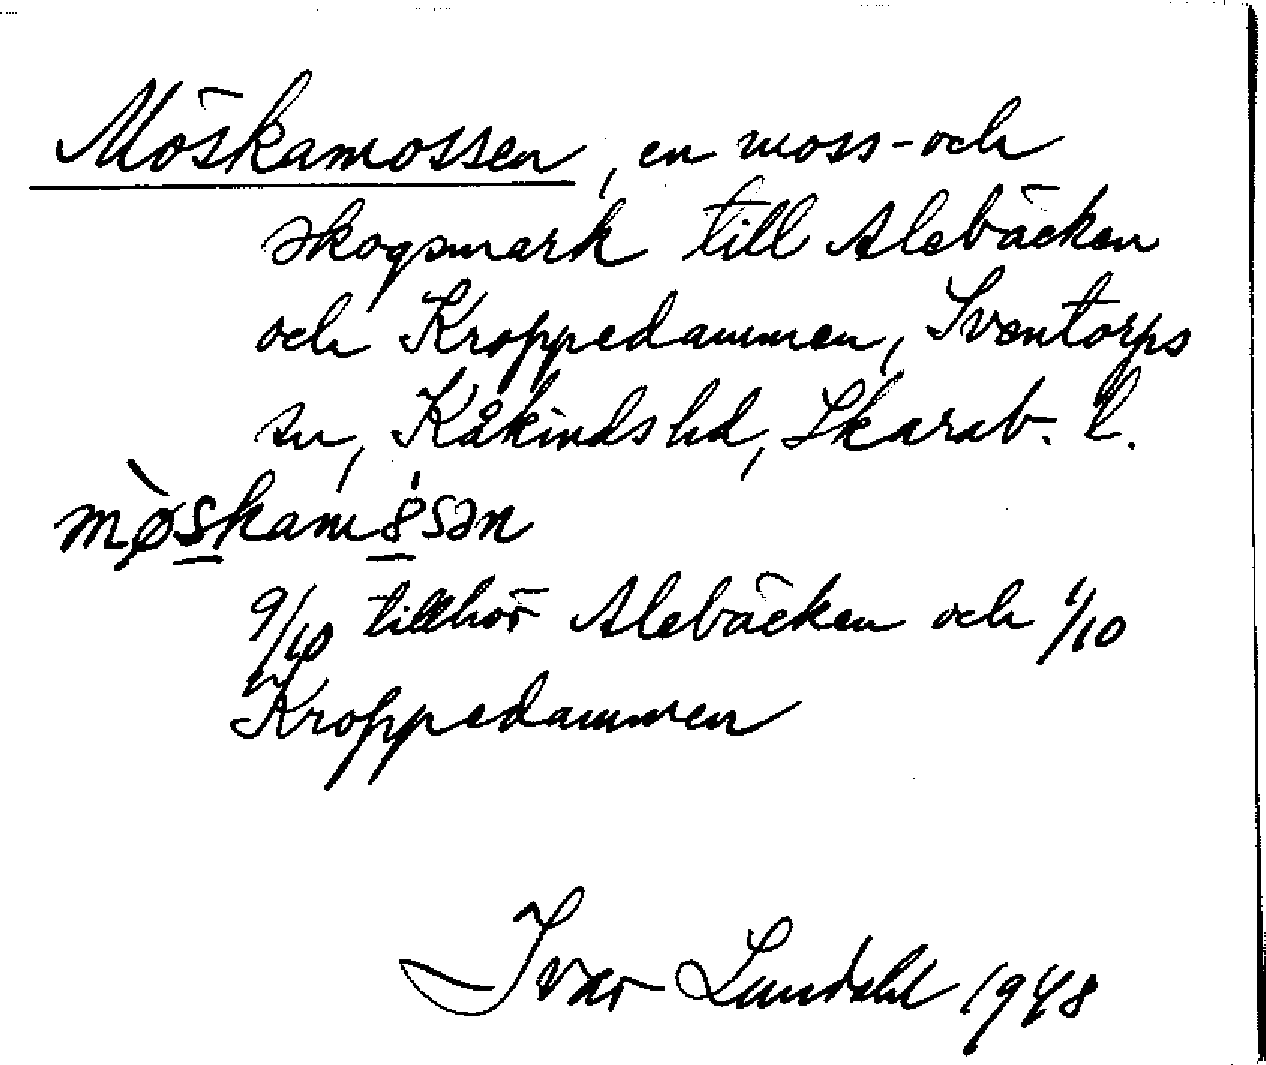 Möskamossen, en moss- och
skogsmark till Alebäcken
och Kroppedammen, Sventorps
sn, Kåkinds hd, Skarab. l.
mø̀skamȯ́sən
9/10 tillhör Alebäcken och 1/10
Kroppedammen
Ivar Lundahl 1948